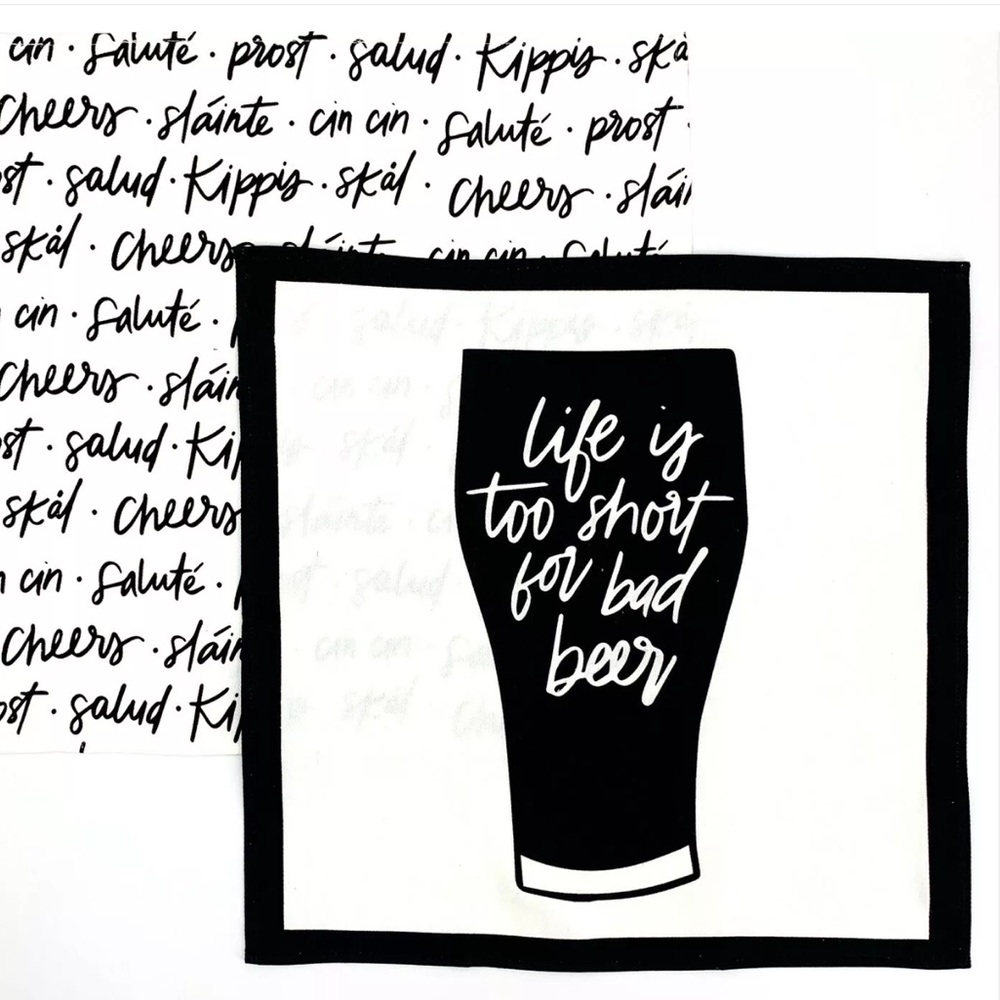 cin · Saluté · prost · salud · Kippis · skå
Cheers · sláinte · cin cin · Saluté · prost ·
st · salud · Kippis · skål · Cheers · sláin
skål · Cheers · sláinte cin cin · Saluté
cin · Saluté ·
Cheers · sláin
st · salud · Ki
skål · Cheers
cin · Saluté ·
Cheers · sláin
ost · salud · Kip
life is
too short
for bad
beer